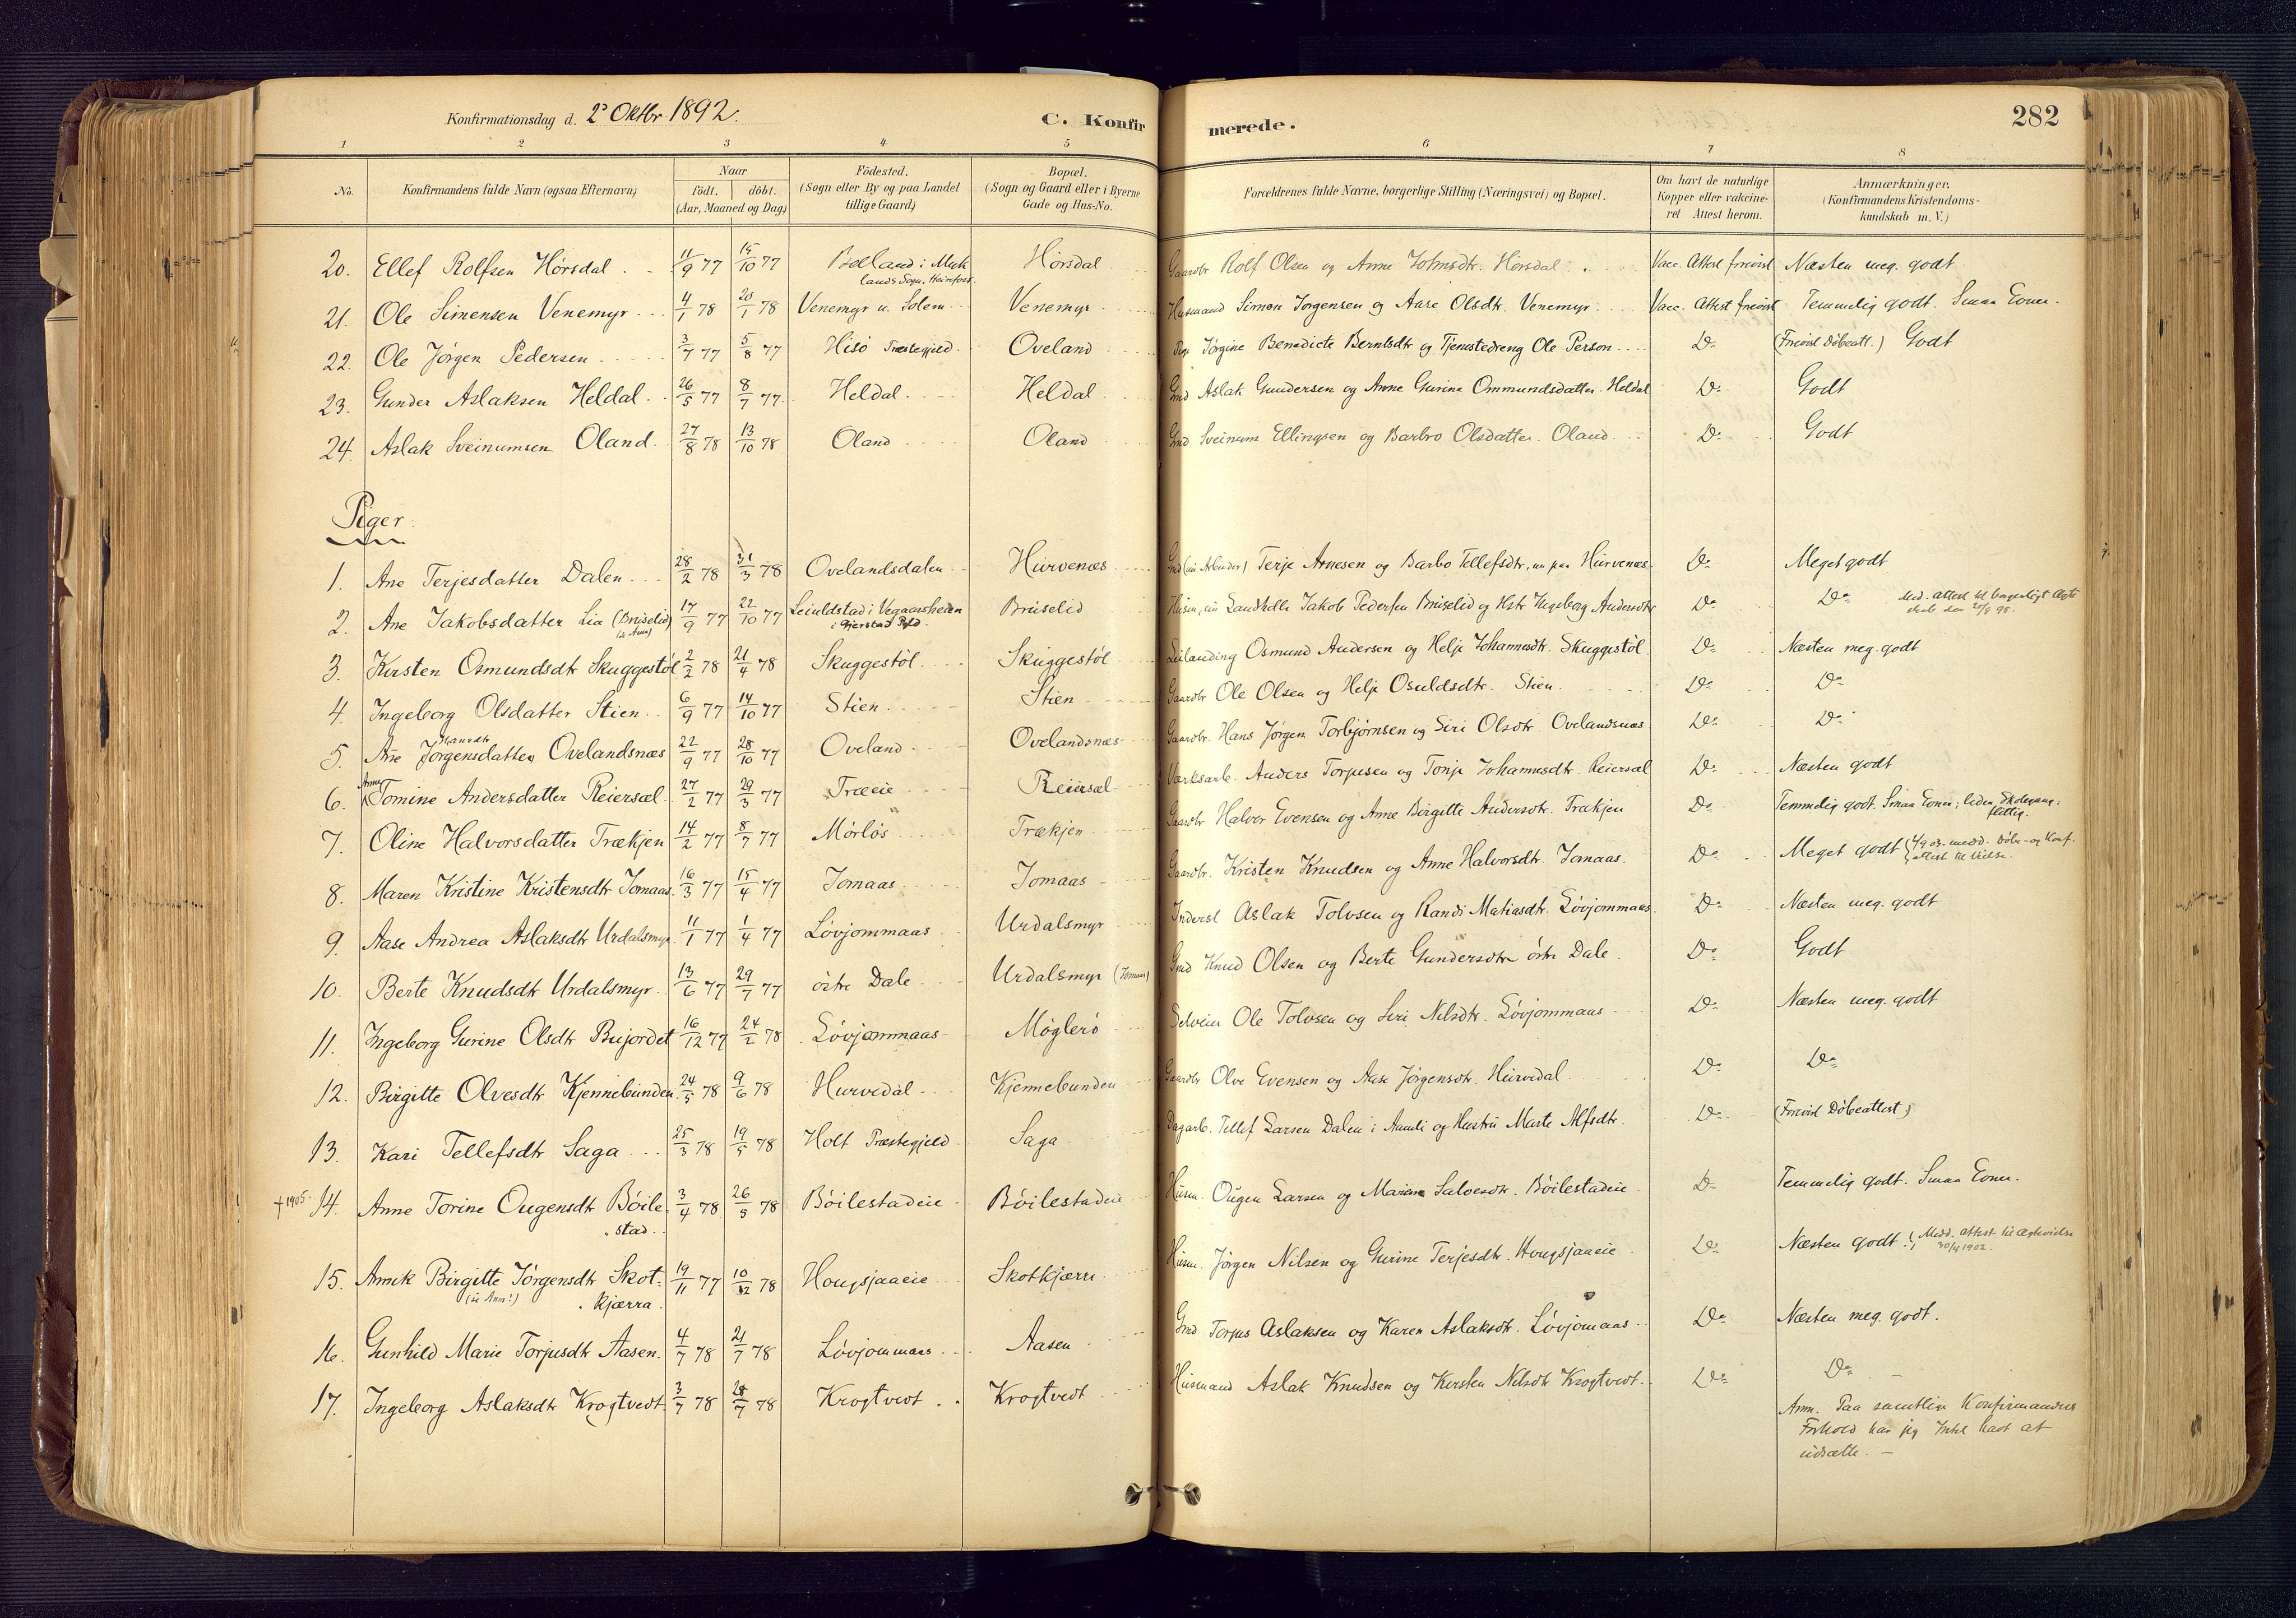 Konfirmationsdag d. 2 Oktbr 1892. C. Konfirmerede. 282
1 2 3 4 5 6 7 8
No. Konfirmandens fulde Navn (ogsaa Efternavn) Naar födt. döbt. (Aar, Maaned og Dag) Födested. (Sogn eller By og paa Landet tillige Gaard) Bopæl. (Sogn og Gaard eller i Byerne Gade og Hus-No. Forældrenes fulde Navne, borgerlige Stilling (Næringsvei) og Bopæl. Om havt de naturlige Kopper eller vakcineret Attest herom. Anmærkninger. (Konfirmandens Kristendomskundskab m. V.)
20. Ellef Rolfsen Hórsdal 11/9 77 15/10 77 Hórsdal Gaardbr Rolf Olsen og Anne Johnsdtr. Hórsdal Vacc. Attest frevist Næsten meg. godt
21. Ole Simensen Venemyr 4/1 78 20/1 78 Venemyr u. Solem Venemyr Husmand Simon Jorgensen og Aase Olsdtr. Venemyr Vacc. Attest frevist Temmelig godt. Smaa Evner.
22. Ole Jórgen Pedersen 3/7 77 5/8 77 Hisó Præstegjeld Oveland Pige Jórgine Benedicte Berntsdtr og Tjenestedreng Ole Person Do (Frevist Dóbeatt.) Godt
23. Gunder Aslaksen Heldal 26/5 77 8/7 77 Heldal Heldal Gmd Aslak Gundersen og Anne Gurine Ommundsdatter Heldal Do Godt
24. Aslak Sveinumsen Oland 27/8 78 13/10 78 Oland Oland Gmd Sveinum Ellingsen og Barbro Olsdatter Oland Do Godt
Piger
1. Ane Terjesdatter Dalen 28/2 78 31/3 78 Ovelandsdalen Hurvenæs Gmd (nu Arbeider) Terje Arnesen og Barbo Tellefsdtr, nu paa Hurvenæs Do Meget godt
2. Ane Jakobsdatter Lia (Bruselid) (se Anm) 17/9 77 22/10 77 Leiuldstad i Vegaarsheien i Gjerstad Pgld. Bruselid Jakob Pedersen Bruselid og Hstr Ingeborg Andersdtr Do Do Med. attest til borgerligt Ægteskab
3. Kirsten Osmundsdtr Skuggestól 2/2 78 21/4 78 Skuggestól Skuggestól Leilænding Osmund Andersen og Helje Johannesdtr. Skuggestól Do Næsten meg. godt
4. Ingeborg Olsdatter Stien 6/9 77 14/10 77 Stien Stien Gaardbr Ole Olsen og Helje Osuldsdtr. Stien Do Do
5. Ane Hansdtr Jórgensdatter Ovelandsnæs 22/9 77 28/10 77 Oveland Ovelandsnæs Gaardbr. Hans Jórgen Torbjórnsen og Siri Olsdtr Ovelandsnæs Do Do
6. Anne Tomine Andersdatter Reiersæl 27/2 77 29/3 77 Træeie Reiersæl Værksarb. Anders Torjusen og Tonje Johannesdtr. Reiersæl Do Næsten godt
7. Oline Halvorsdatter Trækjen 14/2 77 8/7 77 Mórlós Trækjen Gaardbr Halvor Evensen og Anne Birgitte Andersdtr. Trækjen Do Temmelig godt. Smaa Evner; liden Skolegang; flittig.
8. Maren Kristine Kristensdtr Jomaas 16/3 77 15/4 77 Jomaas Jomaas Gaardbr. Kristen Knudsen og Anne Halvorsdtr. Jomaas Do Meget godt medd. Döbe- og Konf. attest til Vielse
9. Aase Andrea Aslaksdtr Urdalsmyr 11/1 77 1/4 77 Lóvjommaas Urdalsmyr Inderst Aslak Tolvsen og Randi Matiasdtr. Lóvjommaas Do Næsten meg. godt
10. Berte Knudsdtr Urdalsmyr 13/6 77 29/7 77 óstre Dale Urdalsmyr (Jomaas) Gmd Knud Olsen og Berte Gundersdtr óstre Dale Do Godt
11. Ingeborg Gurine Olsdtr Bujordet 16/12 77 24/2 78 Lóvjommaas Móglerö Selveier Ole Tolvsen og Siri Nilsdtr. Lóvjommaas Do Næsten meg. godt
12. Birgitte Olvesdtr Kjennebunden 24/5 78 9/6 78 Hurvedal Kjennebunden Gaardbr Olve Evensen og Aase Jórgensdtr. Hurvedal Do Do
13. Kari Tellefsdtr Saga 25/3 78 19/5 78 Holt Præstegjeld Saga Dagarb. Tellef Larsen Dalen i Aamli og Hustru Marte Alfsdtr. Do (Frevist Dóbeattest)
† 1905 14. Anne Torine Ougensdtr Bóilestad 3/4 78 26/5 78 Bóilestadeie Bóilestadeie Husm. Ougen Larsen og Mariane Salvesdtr. Bóilestadeie Do Temmelig godt. Smaa Evner.
15. Annik Birgitte Jórgensdtr Skotkjærra (se Anm!) 19/11 77 10/2 78 Hougsjaaeie Skotkjærr Husm. Jórgen Nilsen og Gurine Terjesdtr. Hougsjaaeie Do Næsten godt. Medd. attest til ægtevielse 1902.
16. Gunhild Marie Torjusdtr Aasen 4/7 78 21/7 78 Lóvjommaas Aasen Gmd Torjus Aslaksen og Karen Aslaksdtr. Lóvjomaas Do Næsten meg. godt.
17. Ingeborg Aslaksdtr Krogtvedt 3/7 78 28/7 78 Krogtvedt Krogtvedt Husmand Aslak Knudsen og Kirsten Nilsdtr Krogtvedt Do Do
Anm. Paa samtlige Konfirmanders
Forhold har jeg Intet havt at
udsætte. —